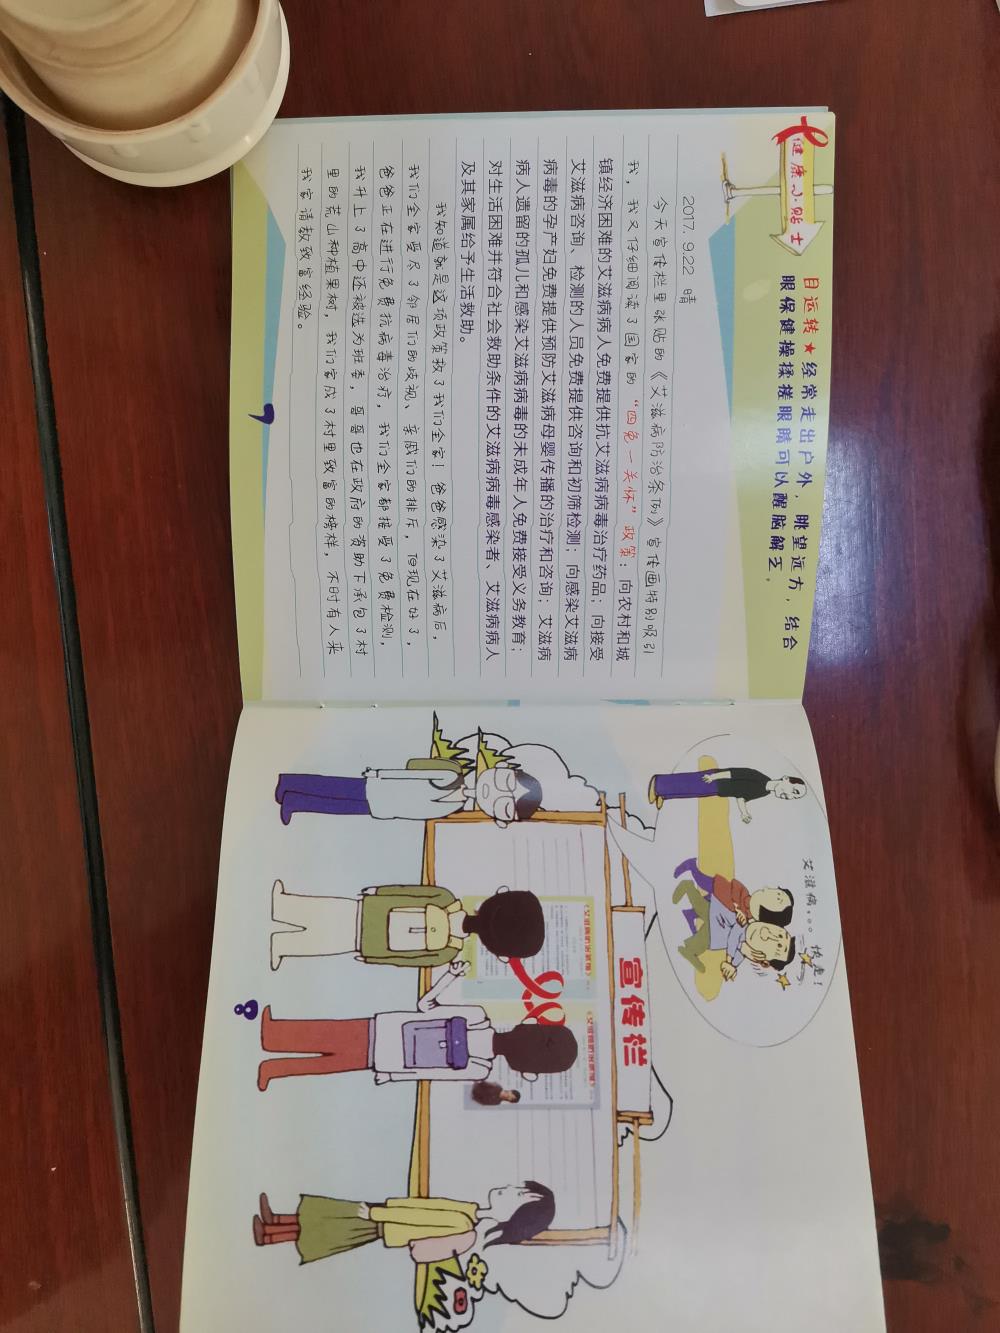 健康小贴士
日运转★经常走出户外，眺望远方，结合
眼保健操揉搓眼睛可以醒脑解乏。
2017.9.22 晴
今天宣传栏里张贴的《艾滋病防治条例》宣传画特别吸引
我，我又仔细阅读了国家的“四免一关怀”政策：向农村和城
镇经济困难的艾滋病病人免费提供抗艾滋病病毒治疗药品；向接受
艾滋病咨询、检测的人员免费提供咨询和初筛检测；向感染艾滋病
病毒的孕产妇免费提供预防艾滋病母婴传播的治疗和咨询；艾滋病
病人遗留的孤儿和感染艾滋病病毒的未成年人免费接受义务教育；
对生活困难并符合社会救助条件的艾滋病病毒感染者、艾滋病病人
及其家属给予生活救助。
我知道就是这项政策救了我们全家！爸爸感染了艾滋病后，
我们全家受尽了邻居们的歧视、亲戚们的排斥，但现在好了，
爸爸正在进行免费抗病毒治疗，我们全家都接受了免费检测，
我升上了高中还被选为班委，哥哥也在政府的资助下承包了村
里的荒山种植果树，我们家成了村里致富的榜样，不时有人来
我家请教致富经验。
7
艾滋病。。。快走！
宣传栏
《艾滋病防治条例》
《艾滋病防治条例》
8